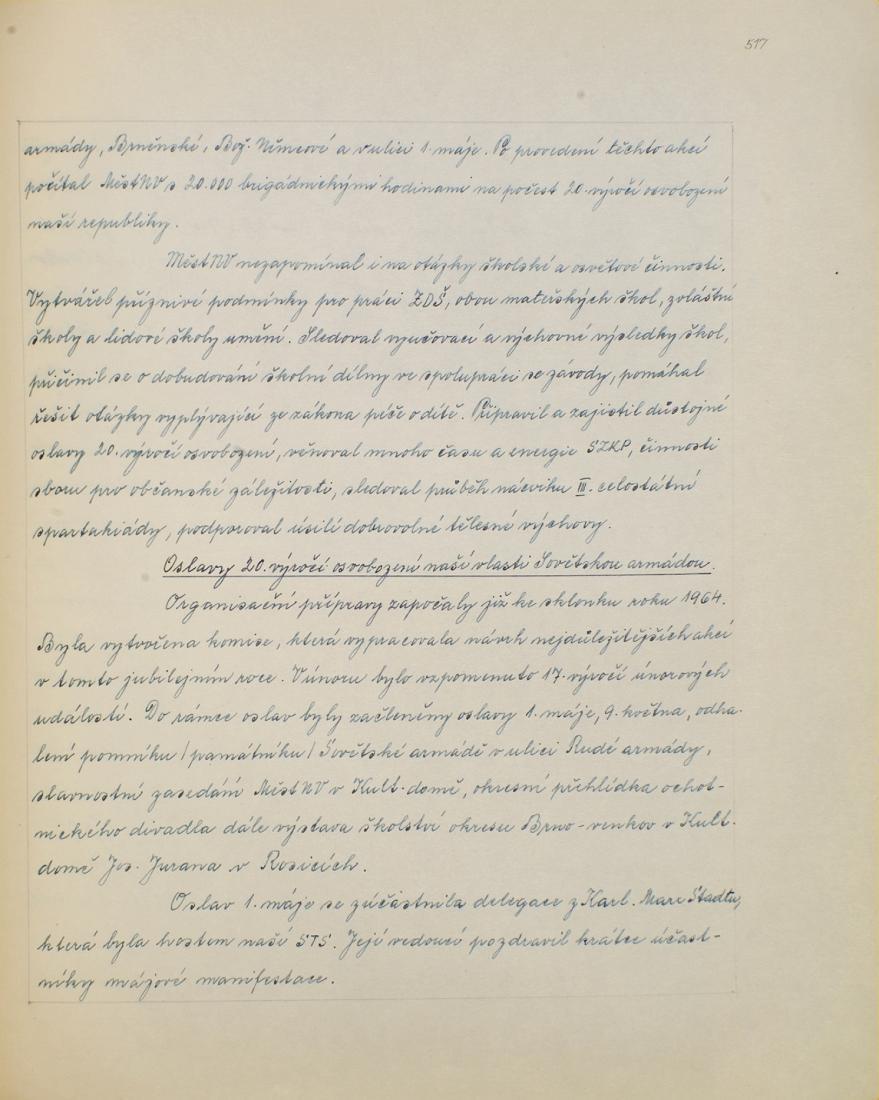 517
armády, Brněnské, Bož. Němcové a v ulici 1. máje. Po provedení těchto akcí
počítal MěstNV s 20.000 brigádnickými hodinami na počest 20. výročí osvobození
naší republiky.
MěstNV nezapomínal i na otázky školské a osvětové činnosti.
Vytvářel příznivé podmínky pro práci ZDŠ, obou mateřských škol, zvláštní
školy a lidové školy umění. Sledoval vyučovací a výchovné výsledky škol,
přičinil se o dobudování školní dílny ve spolupráci se závody, pomáhal
řešit otázky vyplývající ze zákona péče o dítě. Připravil a zajistil důstojné
oslavy 20. výročí osvobození, věnoval mnoho času a energie SZKP, činnosti
sboru pro občanské záležitosti, sledoval průběh nácviku III. celostátní
spartakiády, podporoval úsilí dobrovolné tělesné výchovy.
Oslavy 20. výročí osvobození naší vlasti Sovětskou armádou.
Organisační přípravy započaly již ke sklonku roku 1964.
Byla vytvořena komise, která vypracovala návrh nejdůležitějších akcí
v tomto jubilejním roce. V únoru bylo vzpomenuto 17. výročí únorových
událostí. Do rámce oslav byly začleněny oslavy 1. máje, 9. května, odha-
lení pomníku /památníku/ Sovětské armádě v ulici Rudé armády,
slavnostní zasedání MěstNV v Kult. domě, okresní přehlídka ochot-
nického divadla dále výstava školství okresu Brno-venkov v Kult.
domě Jos. Jurana v Rosicích.
Oslav 1. máje se zúčastnila delegace z Karl. Marx Stadtu,
která byla hostem naší STS. Její vedoucí pozdravil krátce účast-
níky májové manifestace.